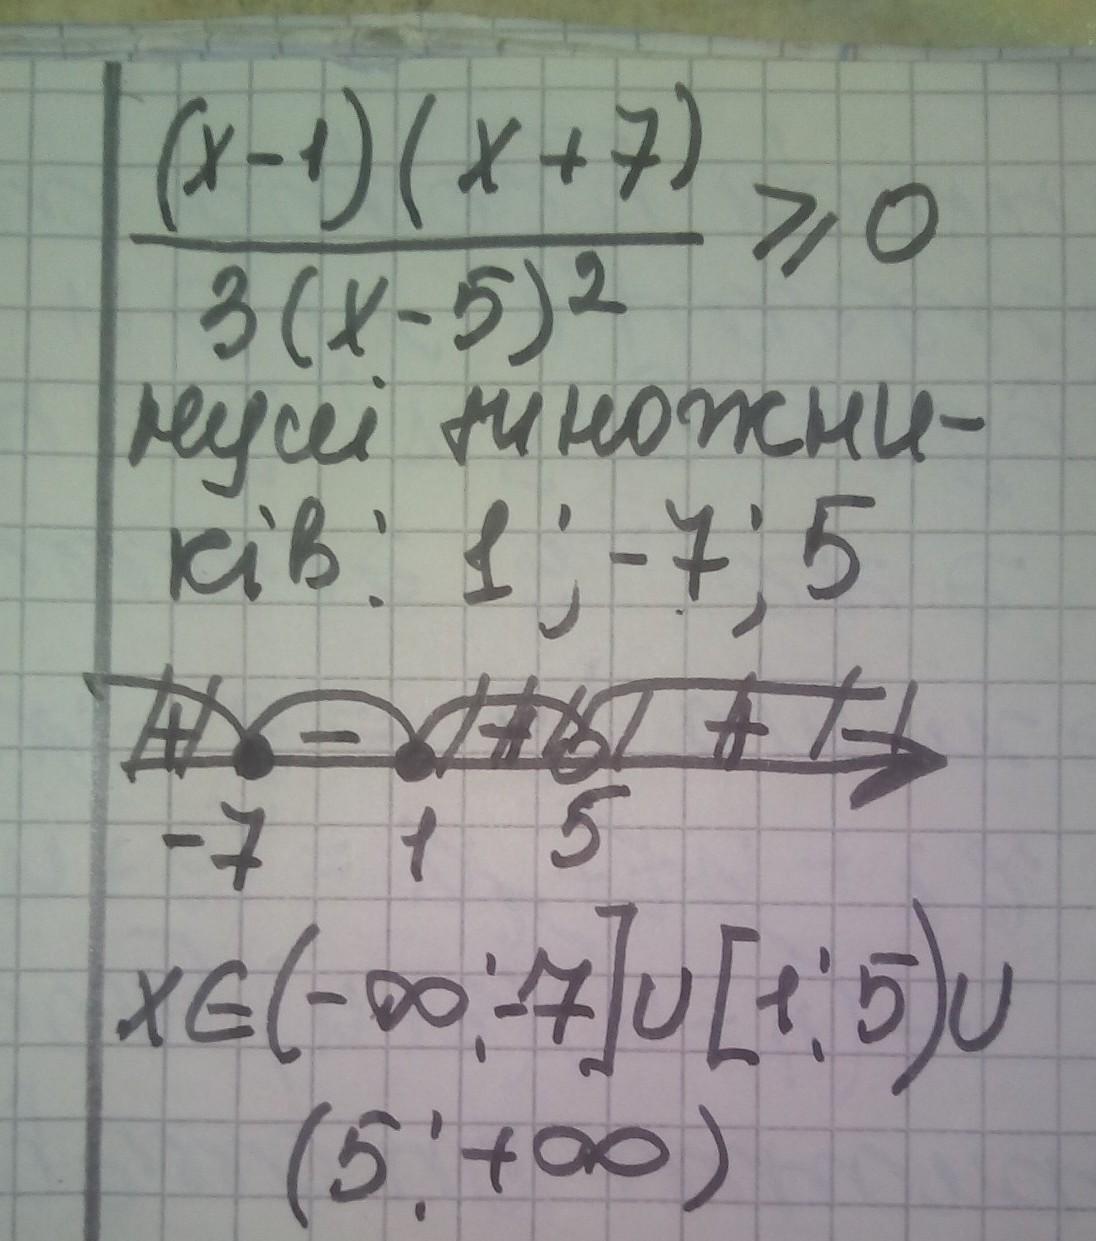 (x-1)(x+7)
3(x-5)²
⩾ 0
нулі множни-
ків: 1; -7; 5
+ - + +
-7 1 5
x∈(-∞;-7]∪[1;5)∪
(5;+∞)